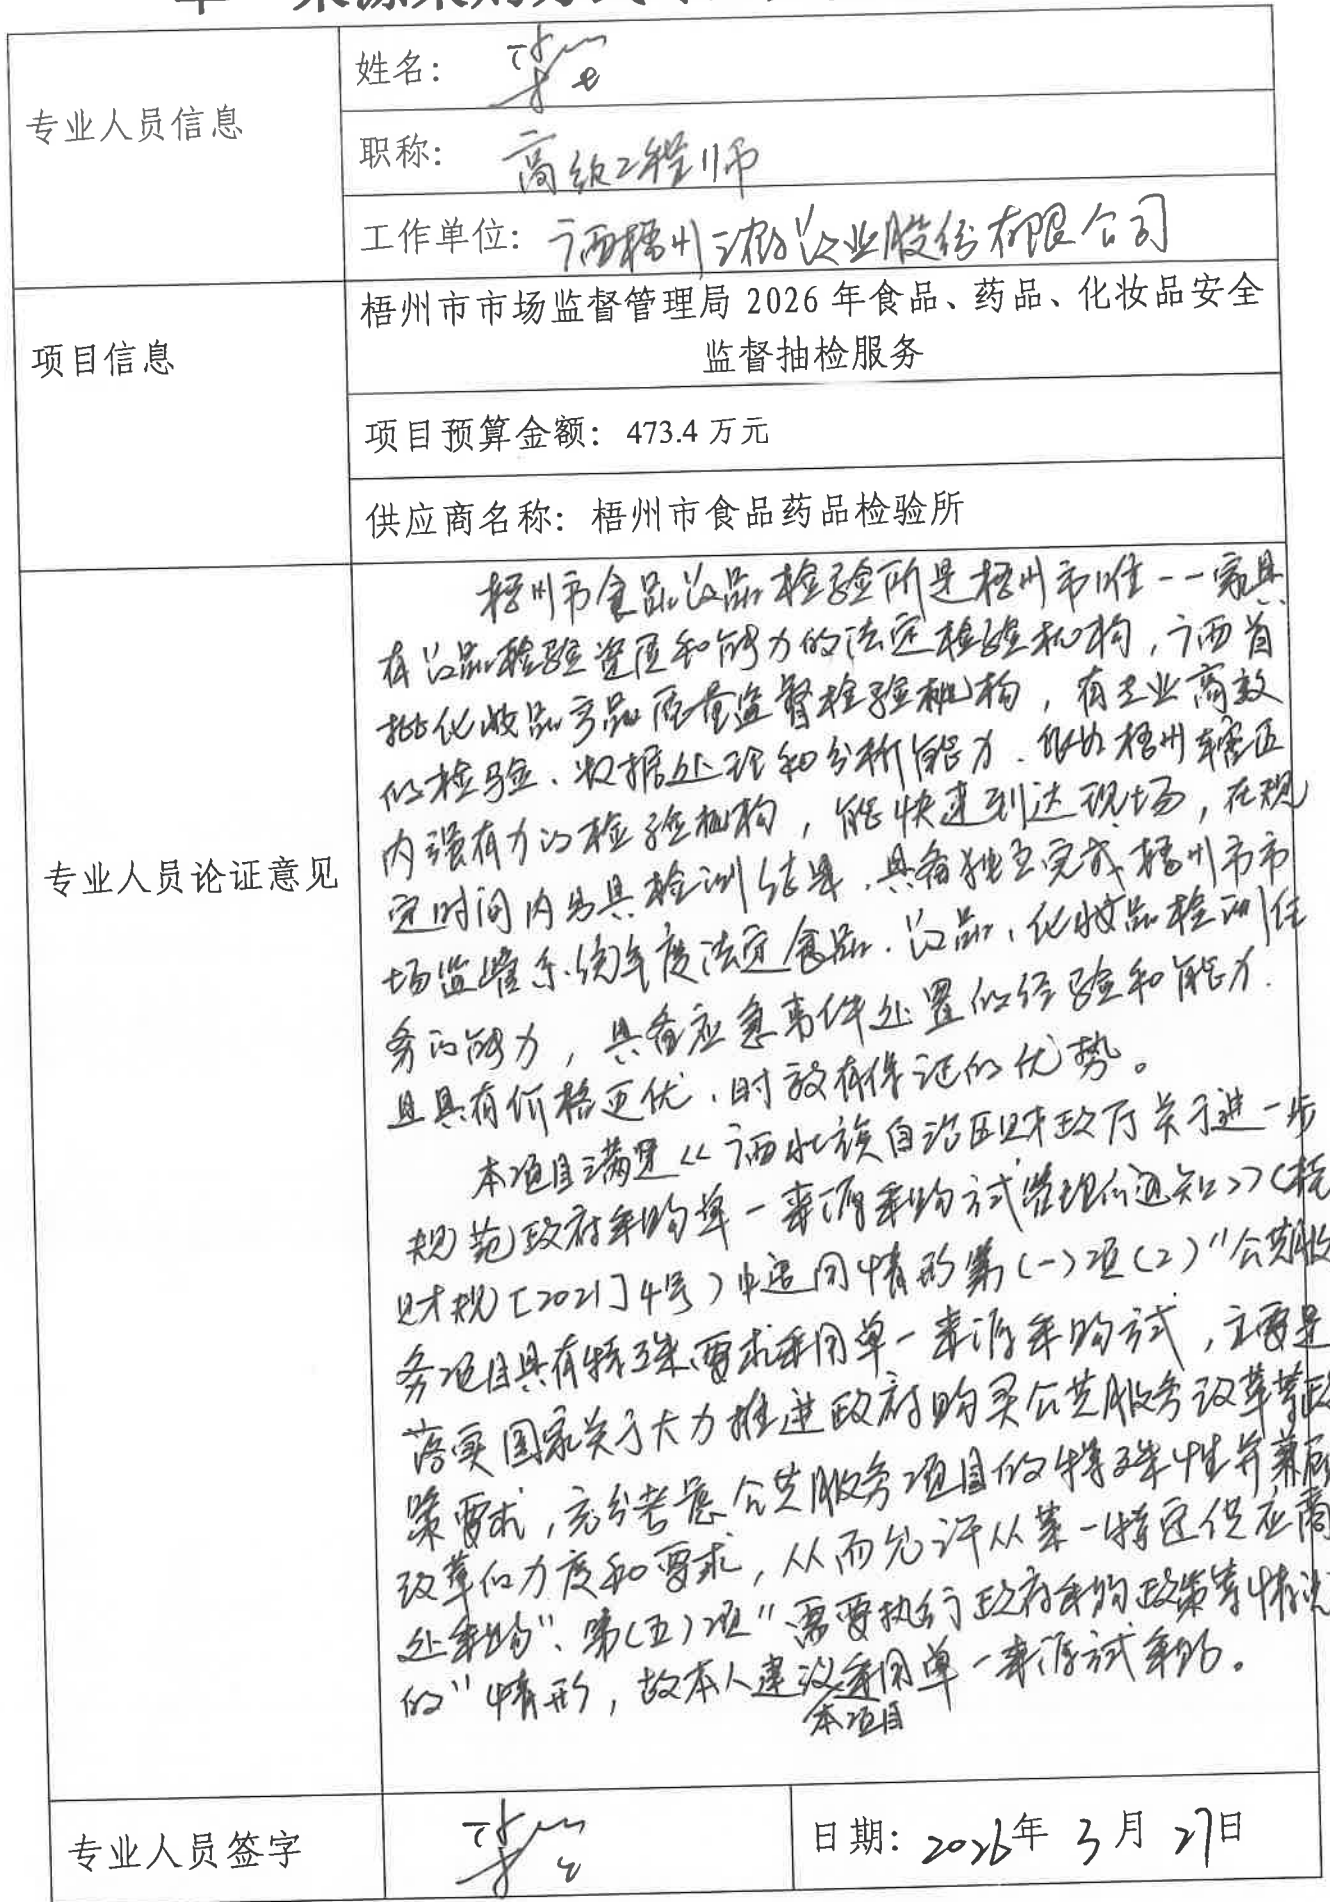 单一来源采购方式
专业人员信息
姓名：
职称： 高级工程师
工作单位： 广西梧州 药业股份有限公司
项目信息
梧州市市场监督管理局 2026 年食品、药品、化妆品安全
监督抽检服务
项目预算金额：473.4 万元
供应商名称：梧州市食品药品检验所
专业人员论证意见
梧州市食品药品检验所是梧州市唯一一家具
有药品检验资质和能力的法定检验机构，广西首
批化妆品产品质量监督检验机构，有专业高效
的检验、数据处理和分析能力. 梧州辖区
内强有力的检验机构，能快速到达现场，在规
定时间内出具检测结果，具备独立完成梧州市市
场监管系统年度法定食品、药品、化妆品检测任
务的能力，具备应急事件处置的经验和能力.
且具有价格更优、时效有保证的优势。
本项目满足《广西壮族自治区财政厅关于进一步
规范政府采购单一来源采购方式管理的通知》（桂
财规〔2021〕4号）中适用情形第（一）项（2）"公共服
务项目具有特殊要求采用单一来源采购方式，主要是
落实国家关于大力推进政府购买公共服务改革等政
策要求，充分考虑公共服务项目的特殊性并兼顾
改革的力度和要求，从而允许从某一特定供应商
处采购"、第（五）项"需要执行政府采购政策等情况
的"情形，故本人建议采用单一来源方式采购。
本项目
专业人员签字
日期：2026年 3 月 27日